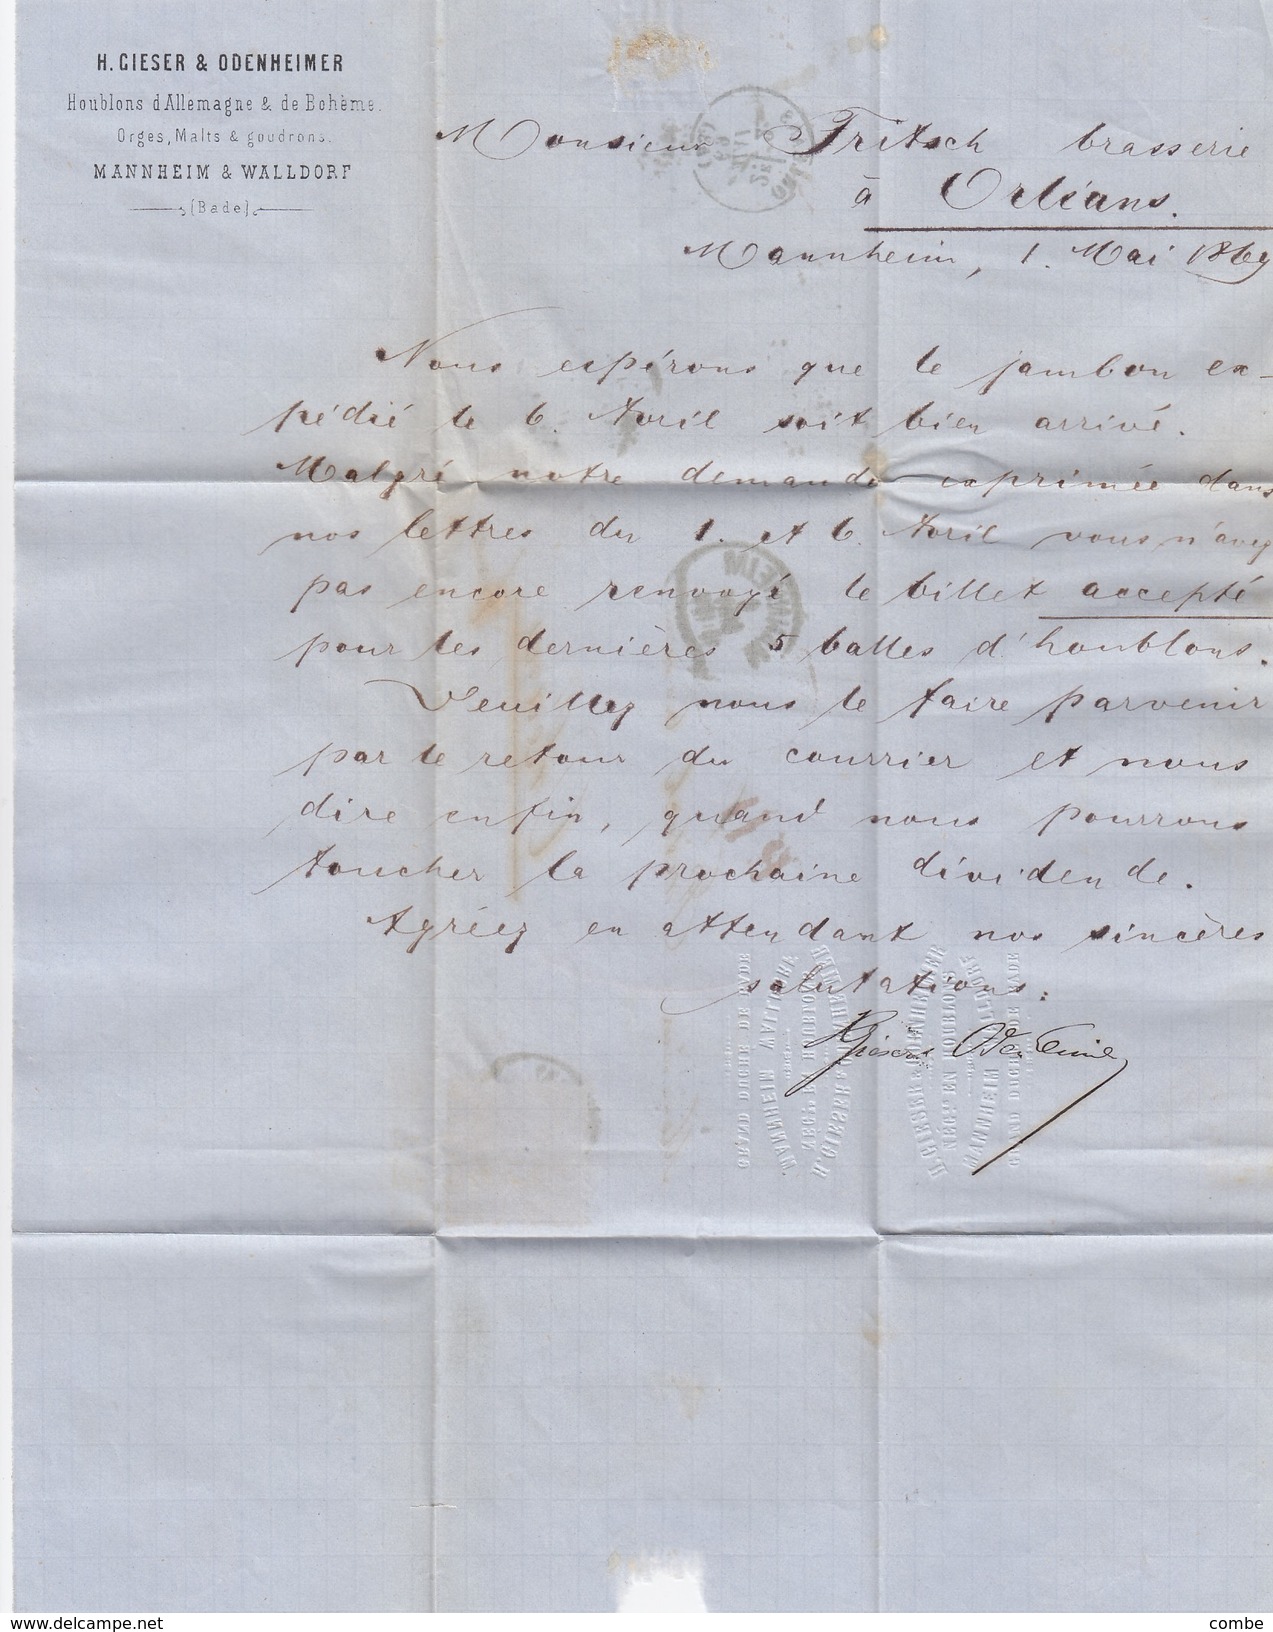 H. GIESER & ODENHEIMER
Houblons d'Allemagne & de Bohème.
Orges, Malts & goudrons.
MANNHEIM & WALLDORF
(Bade)
Monsieur Fritsch brasserie
à Orléans.
Mannheim, 1. Mai 1869
Nous espérons que le jambon ex-
pédié le 6. Avril soit bien arrivé.
Malgré notre demande exprimée dans
nos lettres du 1. et 6. Avril vous n'avez
pas encore renvoyé le billet accepté
pour les dernières 5 balles d'houblons.
Veuillez nous le faire parvenir
par le retour du courrier et nous
dire enfin, quand nous pourrons
toucher la prochaine dividende.
Agréez en attendant nos sincères
salutations:
H. Gieser & Odenheimer
H. GIESER & ODENHEIMER
NEGts EN HOUBLONS
MANNHEIM WALLDORF
GRAND DUCHÉ DE BADE
www.delcampe.net
combe